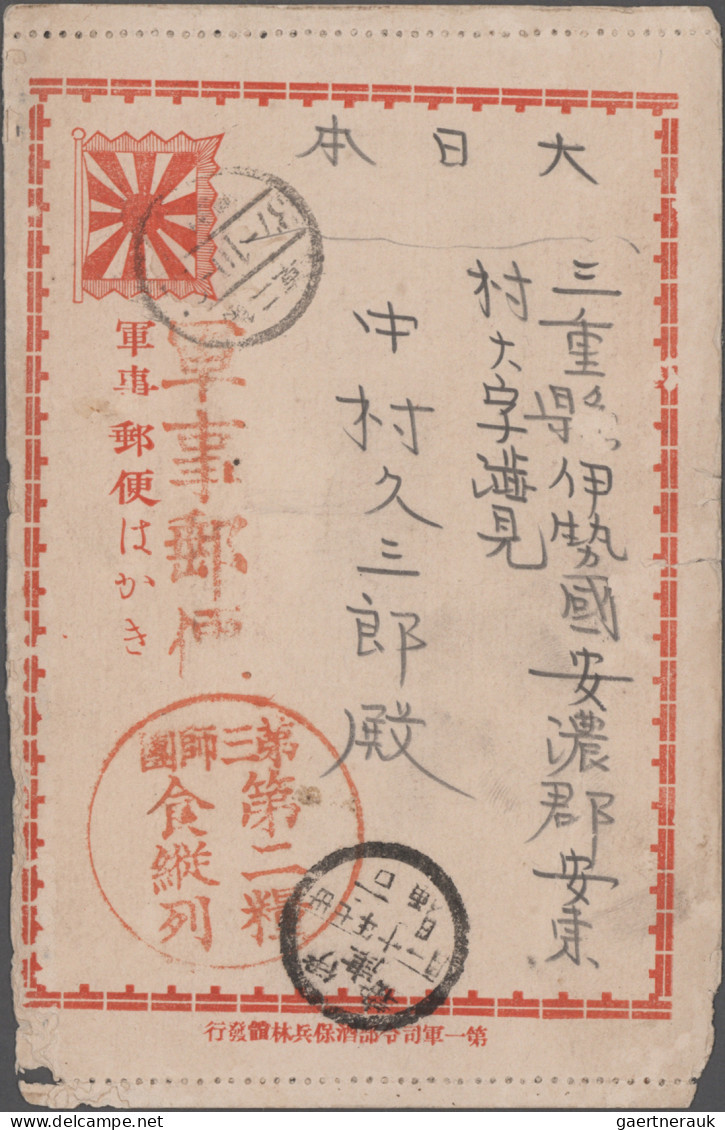 大日本
三重縣伊勢國安濃郡安東
村大字溝見
中村久三郎殿
軍事郵便
軍事郵便はかき
第三師團
第二糧
食縱列
第一軍司令部酒保兵林館發行
gaertnerauk